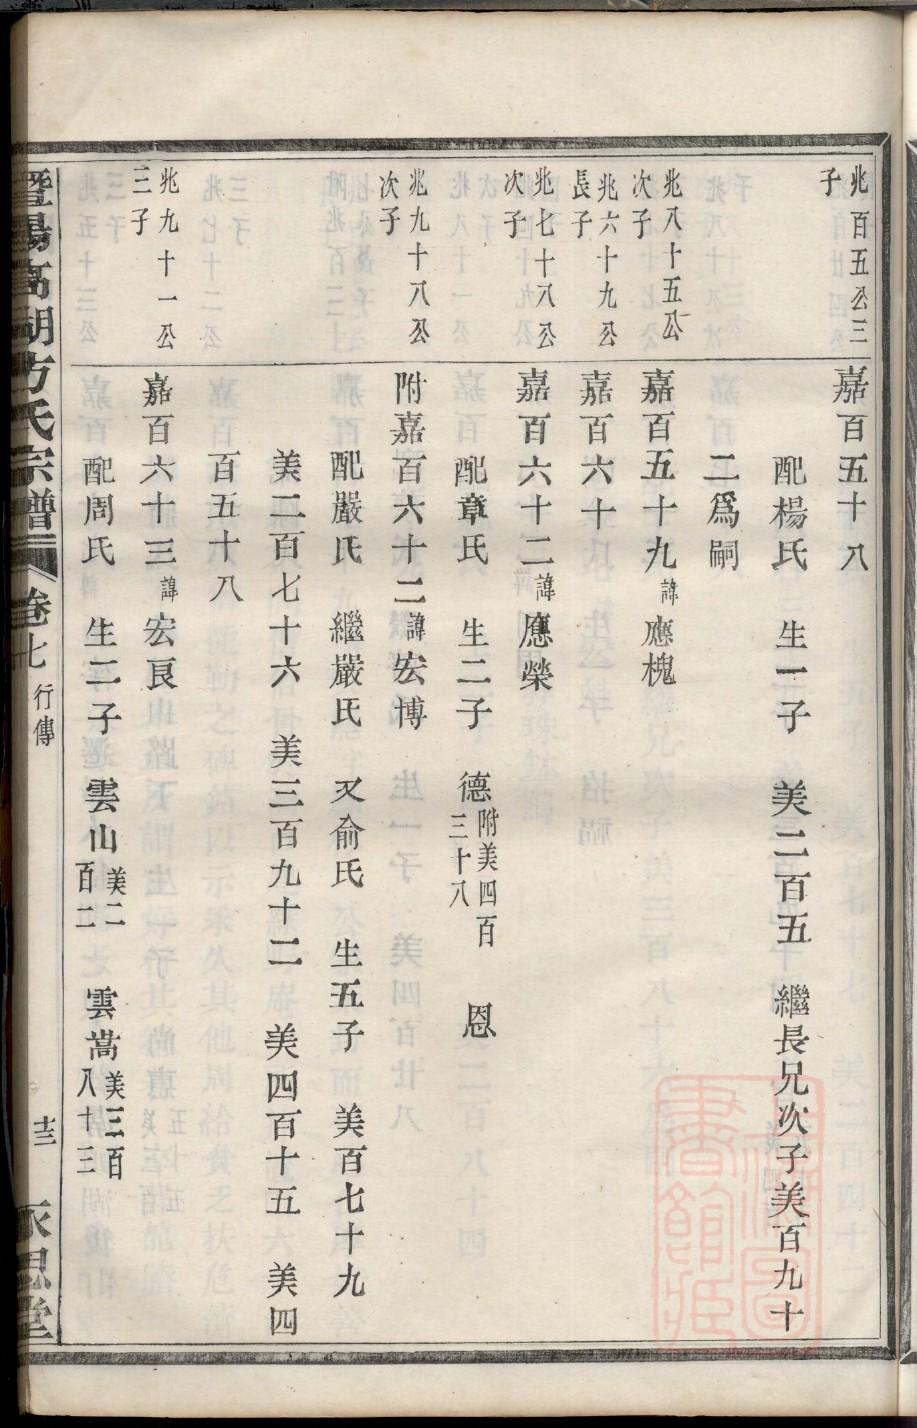 兆百五公三
子
嘉百五十八
配楊氏　生一子　美二百五　繼長兄次子美百九十
二爲嗣
兆八十五公
次子
嘉百五十九諱應槐
兆六十九公
長子
嘉百六十
兆七十八公
次子
嘉百六十二諱應榮
配章氏　生二子　德附美四百三十八　恩
兆九十八公
次子
附嘉百六十二諱宏博
配嚴氏　繼嚴氏　又俞氏　生五子　美百七十九
美二百七十六　美三百九十二　美四百十五　美四
百五十八
兆九十一公
三子
嘉百六十三諱宏良
配周氏　生二子　雲山美二百二　雲嵩美三百八十三
暨陽高湖方氏宗譜　卷七　行傳　十三　永思堂